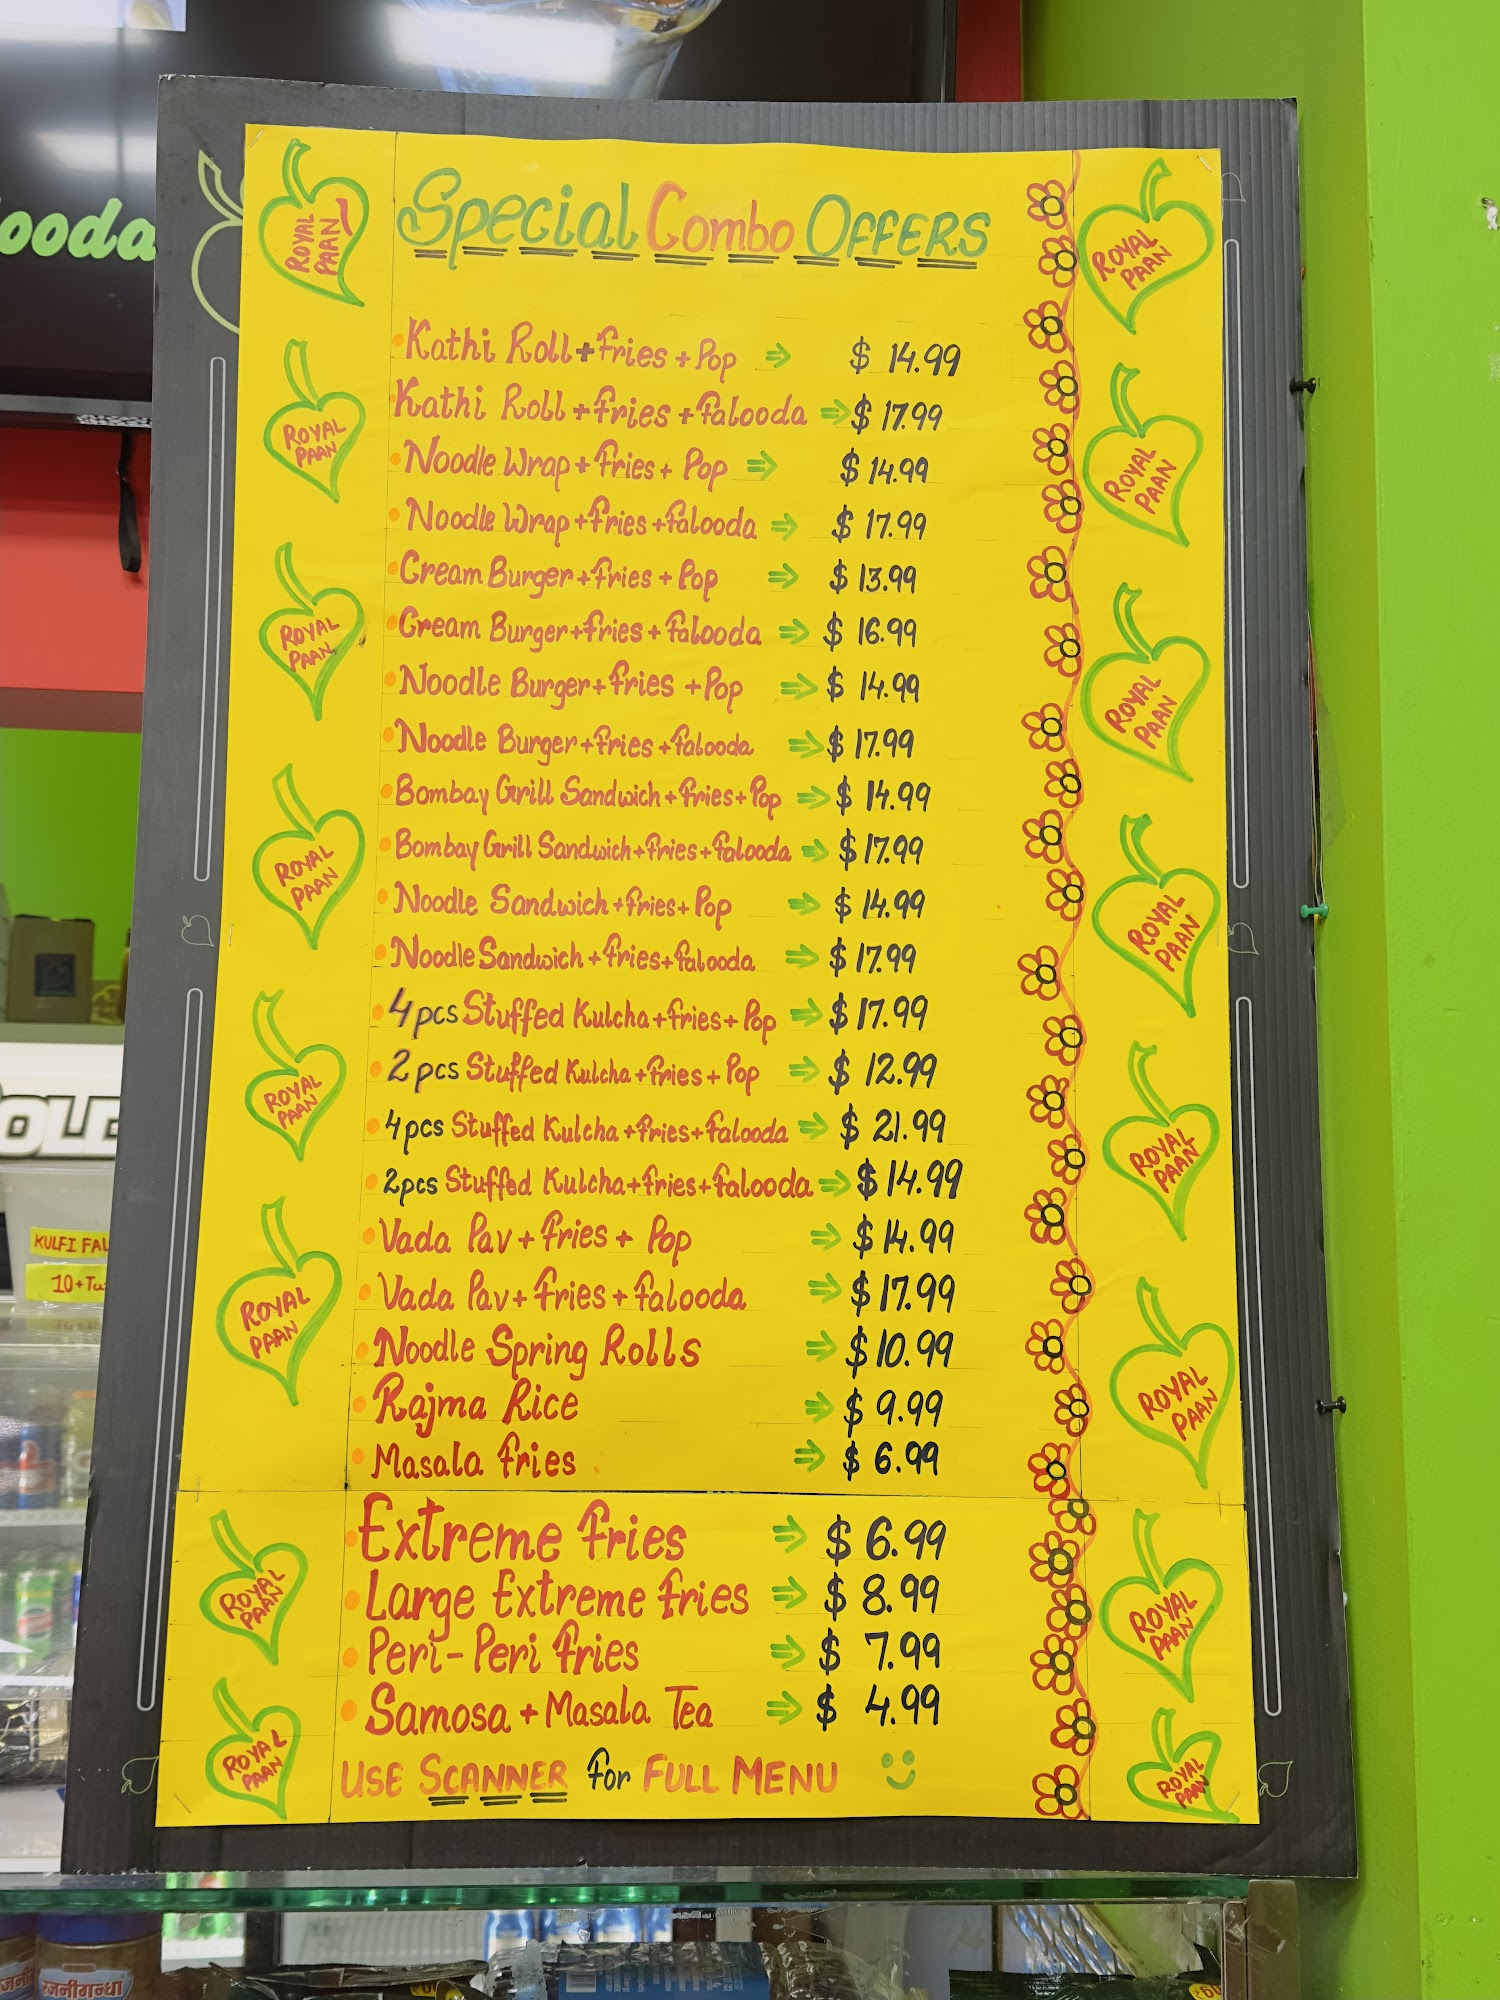 ooda
Special Combo OFFERS
Kathi Roll + fries + Pop ⇒ $ 14.99
Kathi Roll + fries + falooda ⇒ $ 17.99
Noodle Wrap + fries + Pop ⇒ $ 14.99
Noodle Wrap + fries + falooda ⇒ $ 17.99
Cream Burger + fries + Pop ⇒ $ 13.99
Cream Burger + fries + falooda ⇒ $ 16.99
Noodle Burger + fries + Pop ⇒ $ 14.99
Noodle Burger + fries + falooda ⇒ $ 17.99
Bombay Grill Sandwich + fries + Pop ⇒ $ 14.99
Bombay Grill Sandwich + fries + falooda ⇒ $ 17.99
Noodle Sandwich + fries + Pop ⇒ $ 14.99
Noodle Sandwich + fries + falooda ⇒ $ 17.99
4 pcs Stuffed Kulcha + fries + Pop ⇒ $ 17.99
2 pcs Stuffed Kulcha + fries + Pop ⇒ $ 12.99
4 pcs Stuffed Kulcha + fries + falooda ⇒ $ 21.99
2 pcs Stuffed Kulcha + fries + falooda ⇒ $ 14.99
Vada Pav + fries + Pop ⇒ $ 14.99
Vada Pav + fries + falooda ⇒ $ 17.99
Noodle Spring Rolls ⇒ $ 10.99
Rajma Rice ⇒ $ 9.99
Masala fries ⇒ $ 6.99
Extreme fries ⇒ $ 6.99
Large Extreme fries ⇒ $ 8.99
Peri-Peri fries ⇒ $ 7.99
Samosa + Masala Tea ⇒ $ 4.99
USE SCANNER for FULL MENU
ROYAL
PAAN
ROYAL
PAAN
ROYAL
PAAN
ROYAL
PAAN
ROYAL
PAAN
ROYAL
PAAN
ROYAL
PAAN
ROYAL
PAAN
ROYAL
PAAN
ROYAL
PAAN
ROYAL
PAAN
ROYAL
PAAN
ROYAL
PAAN
ROYAL
PAAN
ROYAL
PAAN
ROYAL
PAAN
OLD
KULFI FAL
10+Ta
रजनीगन्धा